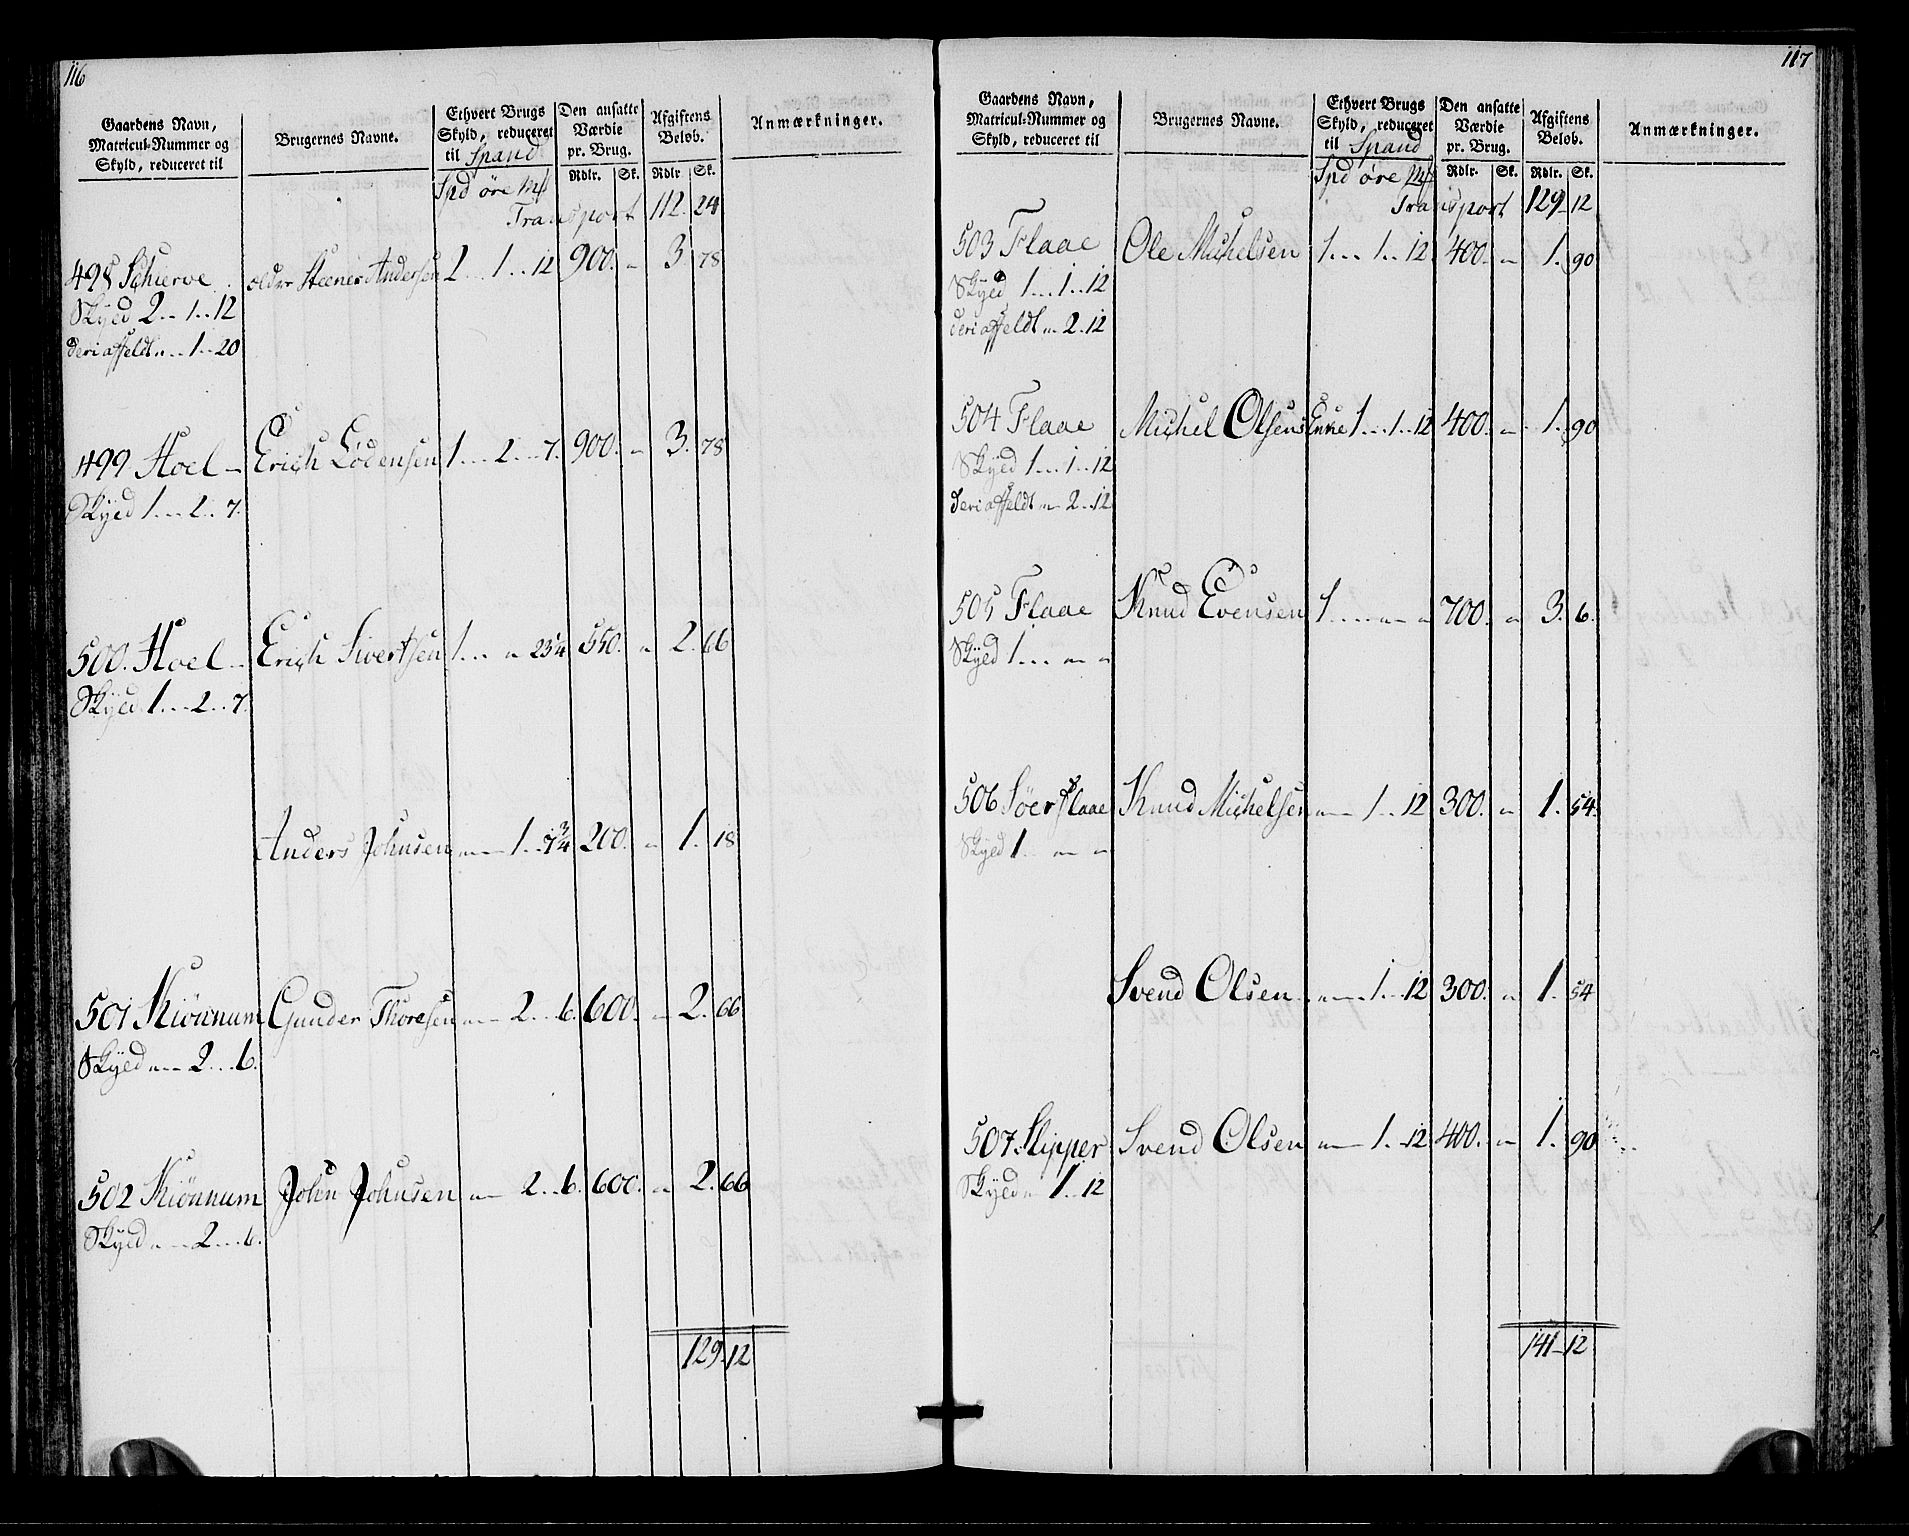 116
Gaardens Navn, Matricul-Nummer og Skyld, reduceret til
Brugernes Navne.
Ethvert Brugs Skyld, reduceret til Spand
Den ansatte Værdie pr. Brug.
Afgiftens Beløb.
Anmærkninger.
Spd øre Rdlr. Sk. Rdlr. Sk.
Transport 112. 24
498 Schierve Steener Andersen 2...1..12 900. „ 3 78
Skyed 2...1..12
deri affeldt „...1..20
499 Hoel Erich Lødensen 1...2...7. 900. „ 3. 78
Skyed 1...2..7.
500. Hoel Erich Sivertsen 1... „ 23 1/4 550. „ 2. 66
Skyed 1...2..7.
Anders Johnsen „ 1...7 3/4 200. „ 1. 18
501 Kiønnum Gunder Thoresen „ 2...6. 600. „ 2. 66
Skyed „ 2...6.
502 Kiønnum John Johnsen „ 2...6. 600. „ 2. 66
Skyed „ 2...6.
129. 12
117
Gaardens Navn, Matricul-Nummer og Skyld, reduceret til
Brugernes Navne.
Ethvert Brugs Skyld, reduceret til Spand
Den ansatte Værdie pr. Brug.
Afgiftens Beløb.
Anmærkninger.
Spd øre Rdlr. Sk. Rdlr. Sk.
Transport 129. 12
503 Flaae Ole Michelsen 1...1..12 400. „ 1. 90
Skyed 1...1..12
deri affeldt „ 2.12
504 Flaae Michel Olsens Enke 1...1..12 400. „ 1. 90
Skyed 1...1..12
deri affeldt „ 2..12
505 Flaae Knud Evensen 1... „ „ 700. „ 3. 6.
Skyed 1... „ „
506 Søerflaae Knud Michelsen „ 1...12 300. „ 1. 54.
Skyed 1... „ „
Svend Olsen „ 1...12 300. „ 1. 54
507. Slipper Svend Olsen „ 1...12 400. „ 1. 90
Skyed „ 1..12
141. 12